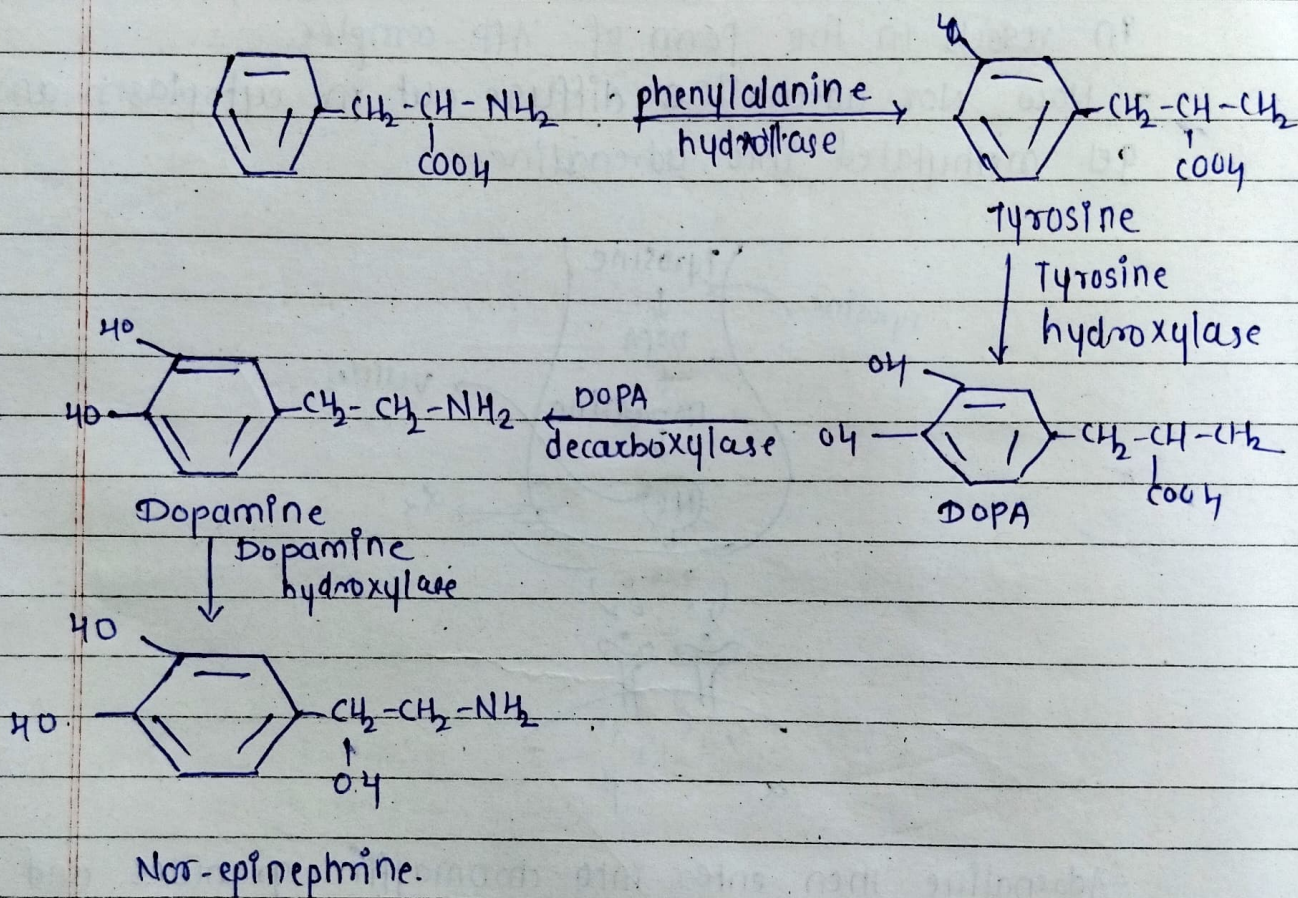 HO
CH₂-CH-NH₂
COOH
phenylalanine
CH₂-CH-CH₂
COOH
Tyrosine
Tyrosine
hydroxylase
HO
HO
CH₂-CH₂-NH₂
DOPA
decarboxylase
OH
OH
CH₂-CH-CH₂
COOH
DOPA
Dopamine
Dopamine
hydroxylase
HO
HO
CH₂-CH₂-NH₂
OH
Nor-epinephrine.